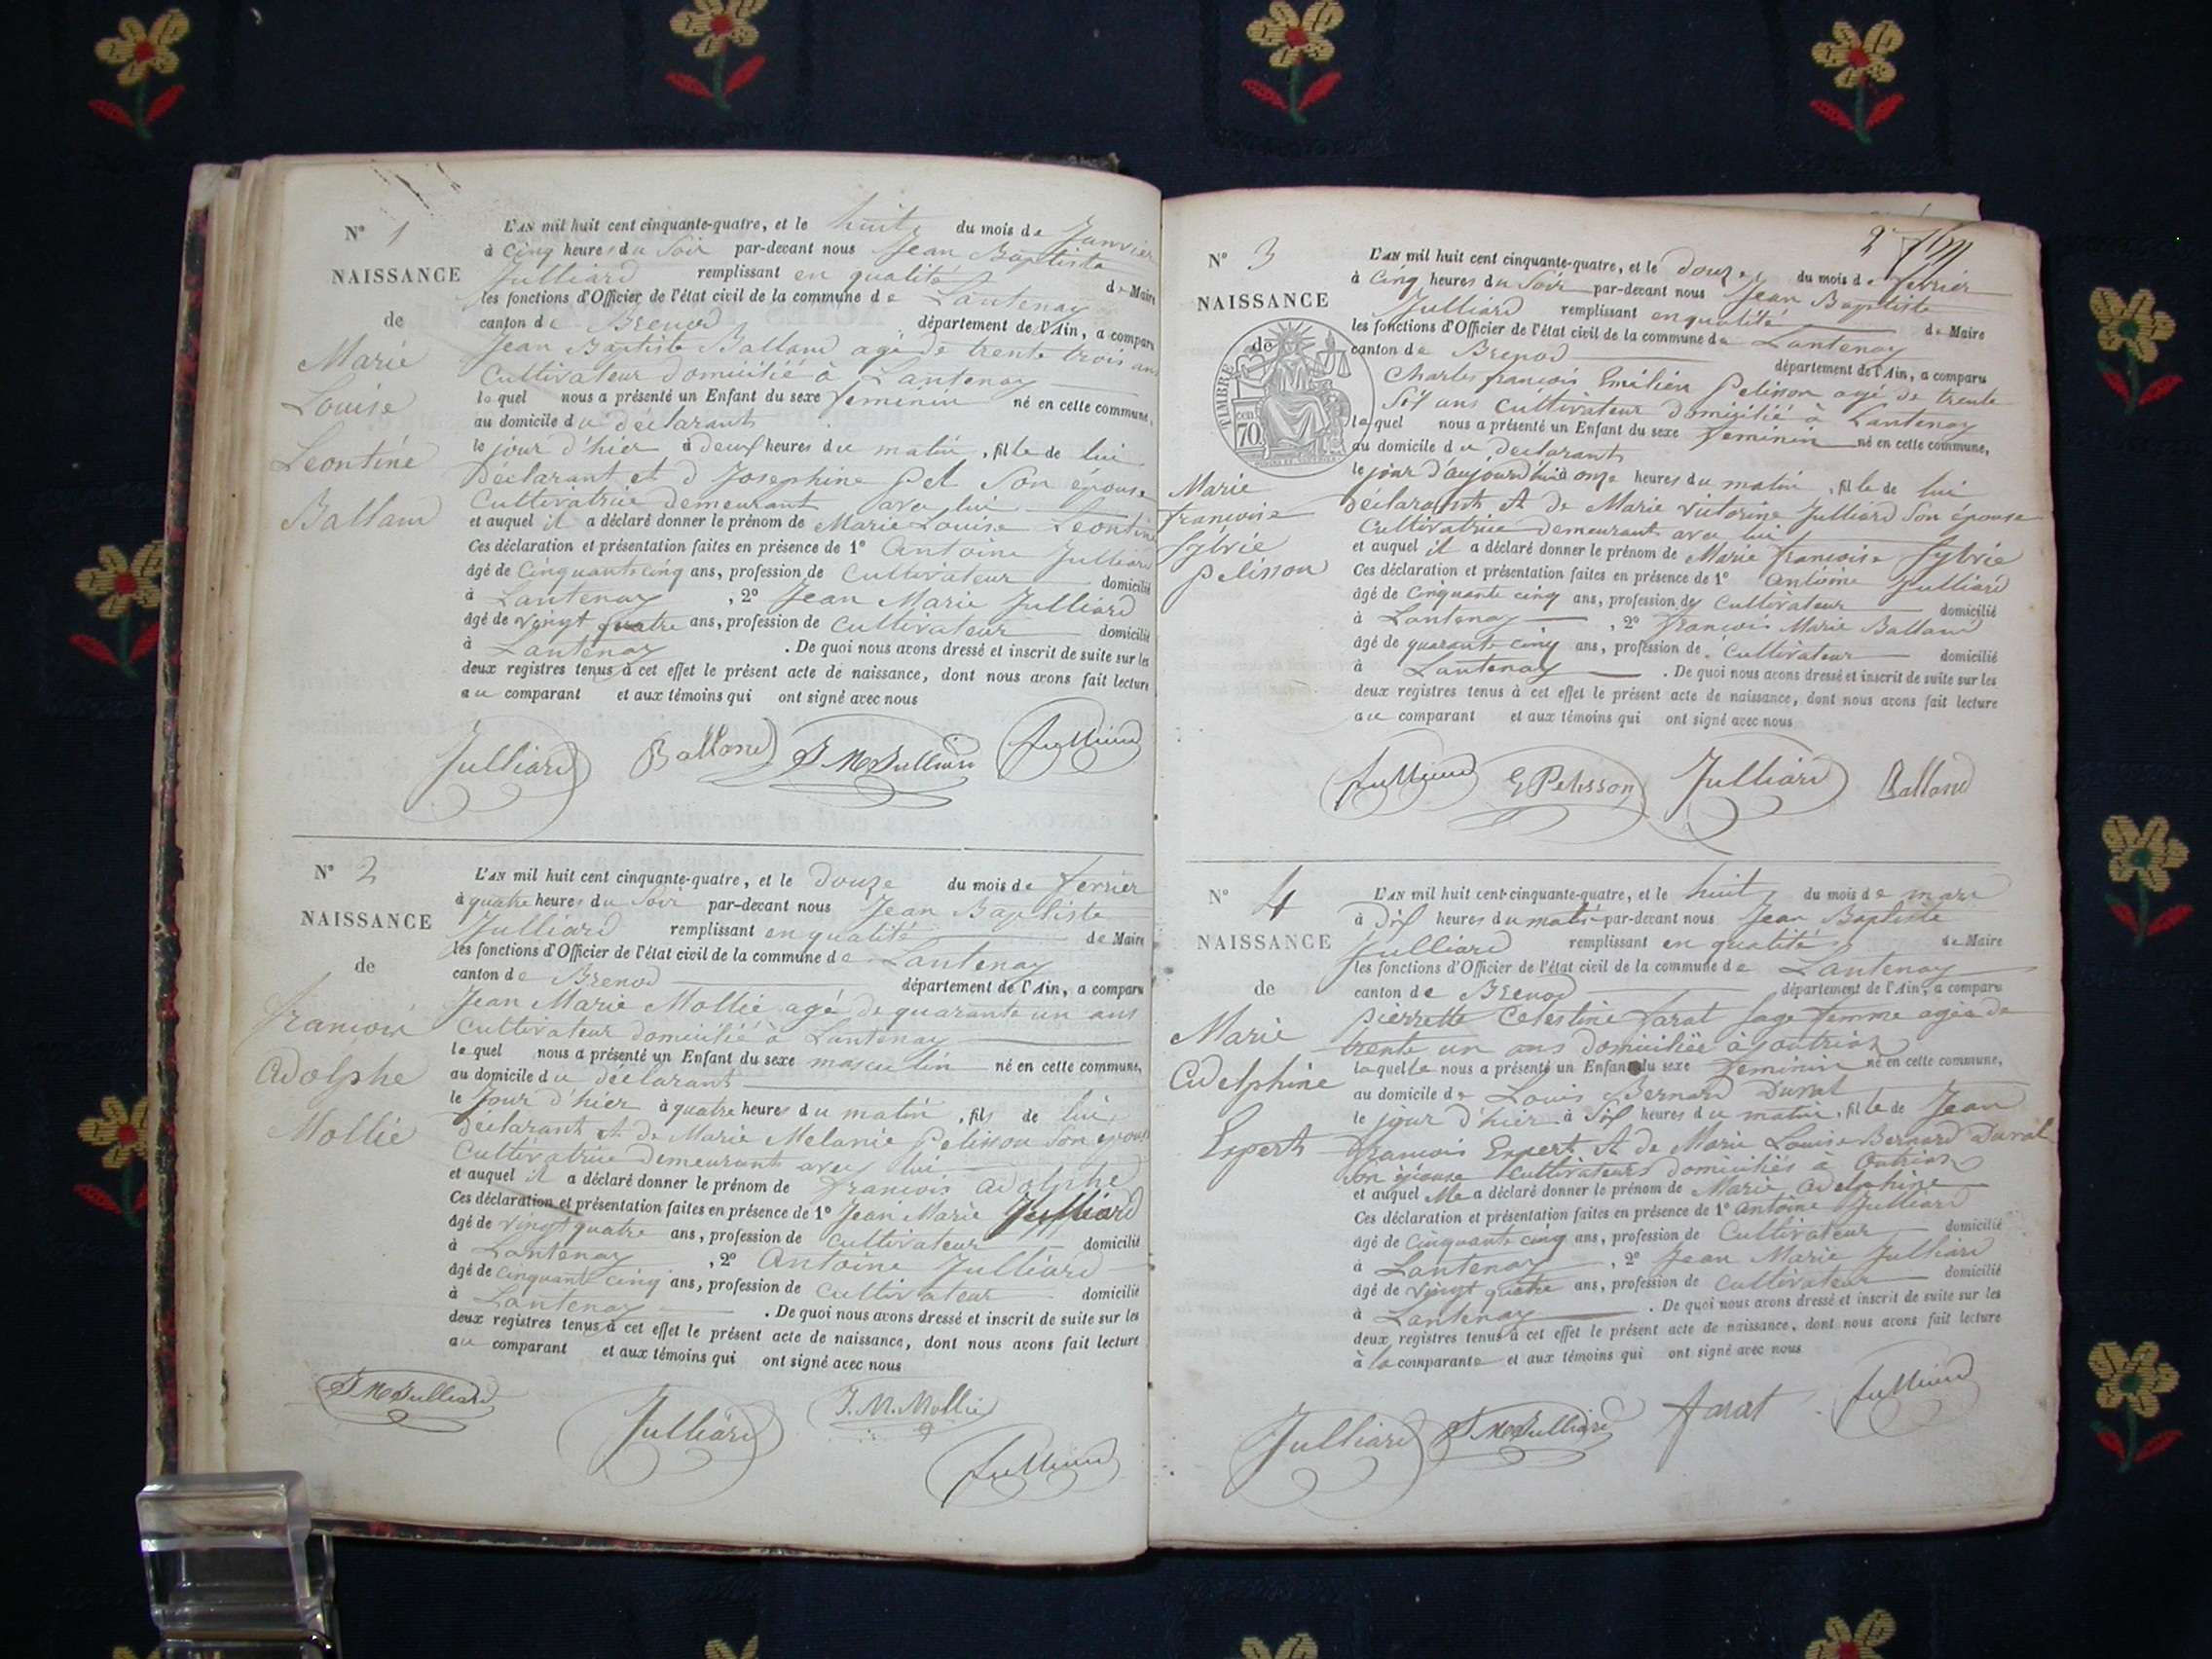 N° 1
NAISSANCE
de
Marie
Louise
Leontine
Balland
L'AN mil huit cent cinquante-quatre, et le huit du mois de Janvier
à cinq heures du Soir par-devant nous Jean Baptiste
Julliard remplissant en qualité de Maire
les fonctions d'Officier de l'état civil de la commune de Lantenay
canton de Brenod département de l'Ain, a comparu
Jean Baptiste Balland agé de trente trois ans
Cultivateur domicilié à Lantenay
lequel nous a présenté un Enfant du sexe feminin né en cette commune,
au domicile du déclarant
le jour d'hier à deux heures du matin, fille de lui
Déclarant et d Josephine Pel Son épouse
Cultivatrice demeurant avec lui
et auquel il a déclaré donner le prénom de Marie Louise Leontine
Ces déclaration et présentation faites en présence de 1° Antoine Julliard
âgé de Cinquante cinq ans, profession de Cultivateur domicilié
à Lantenay, 2° Jean Marie Julliard
âgé de vingt quatre ans, profession de cultivateur domicilié
à Lantenay. De quoi nous avons dressé et inscrit de suite sur les
deux registres tenus à cet effet le présent acte de naissance, dont nous avons fait lecture
au comparant et aux témoins qui ont signé avec nous
Julliard Balland J M Julliard Julliard
N° 2
NAISSANCE
de
francois
Adolphe
Mollie
L'AN mil huit cent cinquante-quatre, et le douze du mois de fevrier
à quatre heures du Soir par-devant nous Jean Baptiste
Julliard remplissant en qualité de Maire
les fonctions d'Officier de l'état civil de la commune de Lantenay
canton de Brenod département de l'Ain, a comparu
Jean Marie Mollie agé de quarante un ans
Cultivateur domicilié à Lantenay
lequel nous a présenté un Enfant du sexe masculin né en cette commune,
au domicile du déclarant
le Jour d'hier à quatre heures du matin, fils de lui
Déclarant et de Marie Melanie Pelisson Son epouse
Cultivatrice demeurant avec lui
et auquel il a déclaré donner le prénom de francois Adolphe
Ces déclaration et présentation faites en présence de 1° Jean Marie Julliard
âgé de vingt quatre ans, profession de cultivateur domicilié
à Lantenay, 2° Antoine Julliard
âgé de cinquante cinq ans, profession de cultivateur domicilié
à Lantenay. De quoi nous avons dressé et inscrit de suite sur les
deux registres tenus à cet effet le présent acte de naissance, dont nous avons fait lecture
au comparant et aux témoins qui ont signé avec nous
J M Julliard Julliard J. M. Mollie Julliard
2
N° 3
NAISSANCE
de
TIMBRE
70
Marie
francoise
Sylvie
Pelisson
L'AN mil huit cent cinquante-quatre, et le douze du mois de fevrier
à Cinq heures du Soir par-devant nous Jean Baptiste
Julliard remplissant en qualité de Maire
les fonctions d'Officier de l'état civil de la commune de Lantenay
canton de Brenod département de l'Ain, a comparu
Charles francois Emilien Pelisson agé de trente
Six ans Cultivateur domicilié à Lantenay
lequel nous a présenté un Enfant du sexe feminin né en cette commune,
au domicile du Declarant
le jour d'aujourd'hui à onze heures du matin, fille de lui
déclarant et de Marie Victorine Julliard Son épouse
Cultivatrice demeurant avec lui
et auquel il a déclaré donner le prénom de Marie francoise Sylvie
Ces déclaration et présentation faites en présence de 1° Antoine Julliard
âgé de Cinquante cinq ans, profession de Cultivateur domicilié
à Lantenay, 2° francois Marie Balland
âgé de quarante cinq ans, profession de Cultivateur domicilié
à Lantenay. De quoi nous avons dressé et inscrit de suite sur les
deux registres tenus à cet effet le présent acte de naissance, dont nous avons fait lecture
au comparant et aux témoins qui ont signé avec nous
Julliard E Pelisson Julliard Balland
N° 4
NAISSANCE
de
Marie
Adelphine
Expert
L'AN mil huit cent cinquante-quatre, et le huit du mois de mars
à Dix heures du matin par-devant nous Jean Baptiste
Julliard remplissant en qualité de Maire
les fonctions d'Officier de l'état civil de la commune de Lantenay
canton de Brenod département de l'Ain, a comparu
Pierrette Celestine Farat Sage femme agée de
trente un ans domiciliée à
laquelle nous a présenté un Enfant du sexe Feminin né en cette commune,
au domicile de Louis Bernard Duval
le jour d'hier à Six heures du matin, fille de Jean
francois Expert et de Marie Louise Bernard Duval
Son épouse Cultivateurs domiciliés à Outriaz
et auquel elle a déclaré donner le prénom de Marie Adelphine
Ces déclaration et présentation faites en présence de 1° Antoine Julliard
âgé de Cinquante cinq ans, profession de Cultivateur domicilié
à Lantenay, 2° Jean Marie Julliard
âgé de Vingt quatre ans, profession de Cultivateur domicilié
à Lantenay. De quoi nous avons dressé et inscrit de suite sur les
deux registres tenus à cet effet le présent acte de naissance, dont nous avons fait lecture
à la comparante et aux témoins qui ont signé avec nous
Julliard J M Julliard farat Julliard